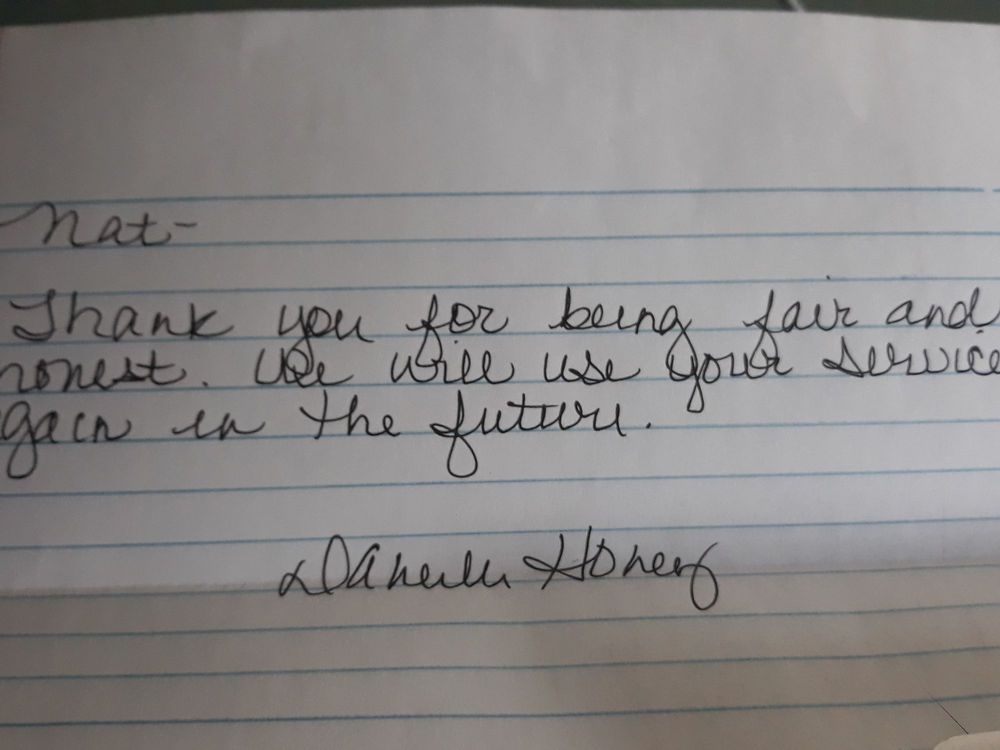 Nat-
Thank you for being fair and
honest. We will use your service
gain in the future.
Danielle Honey